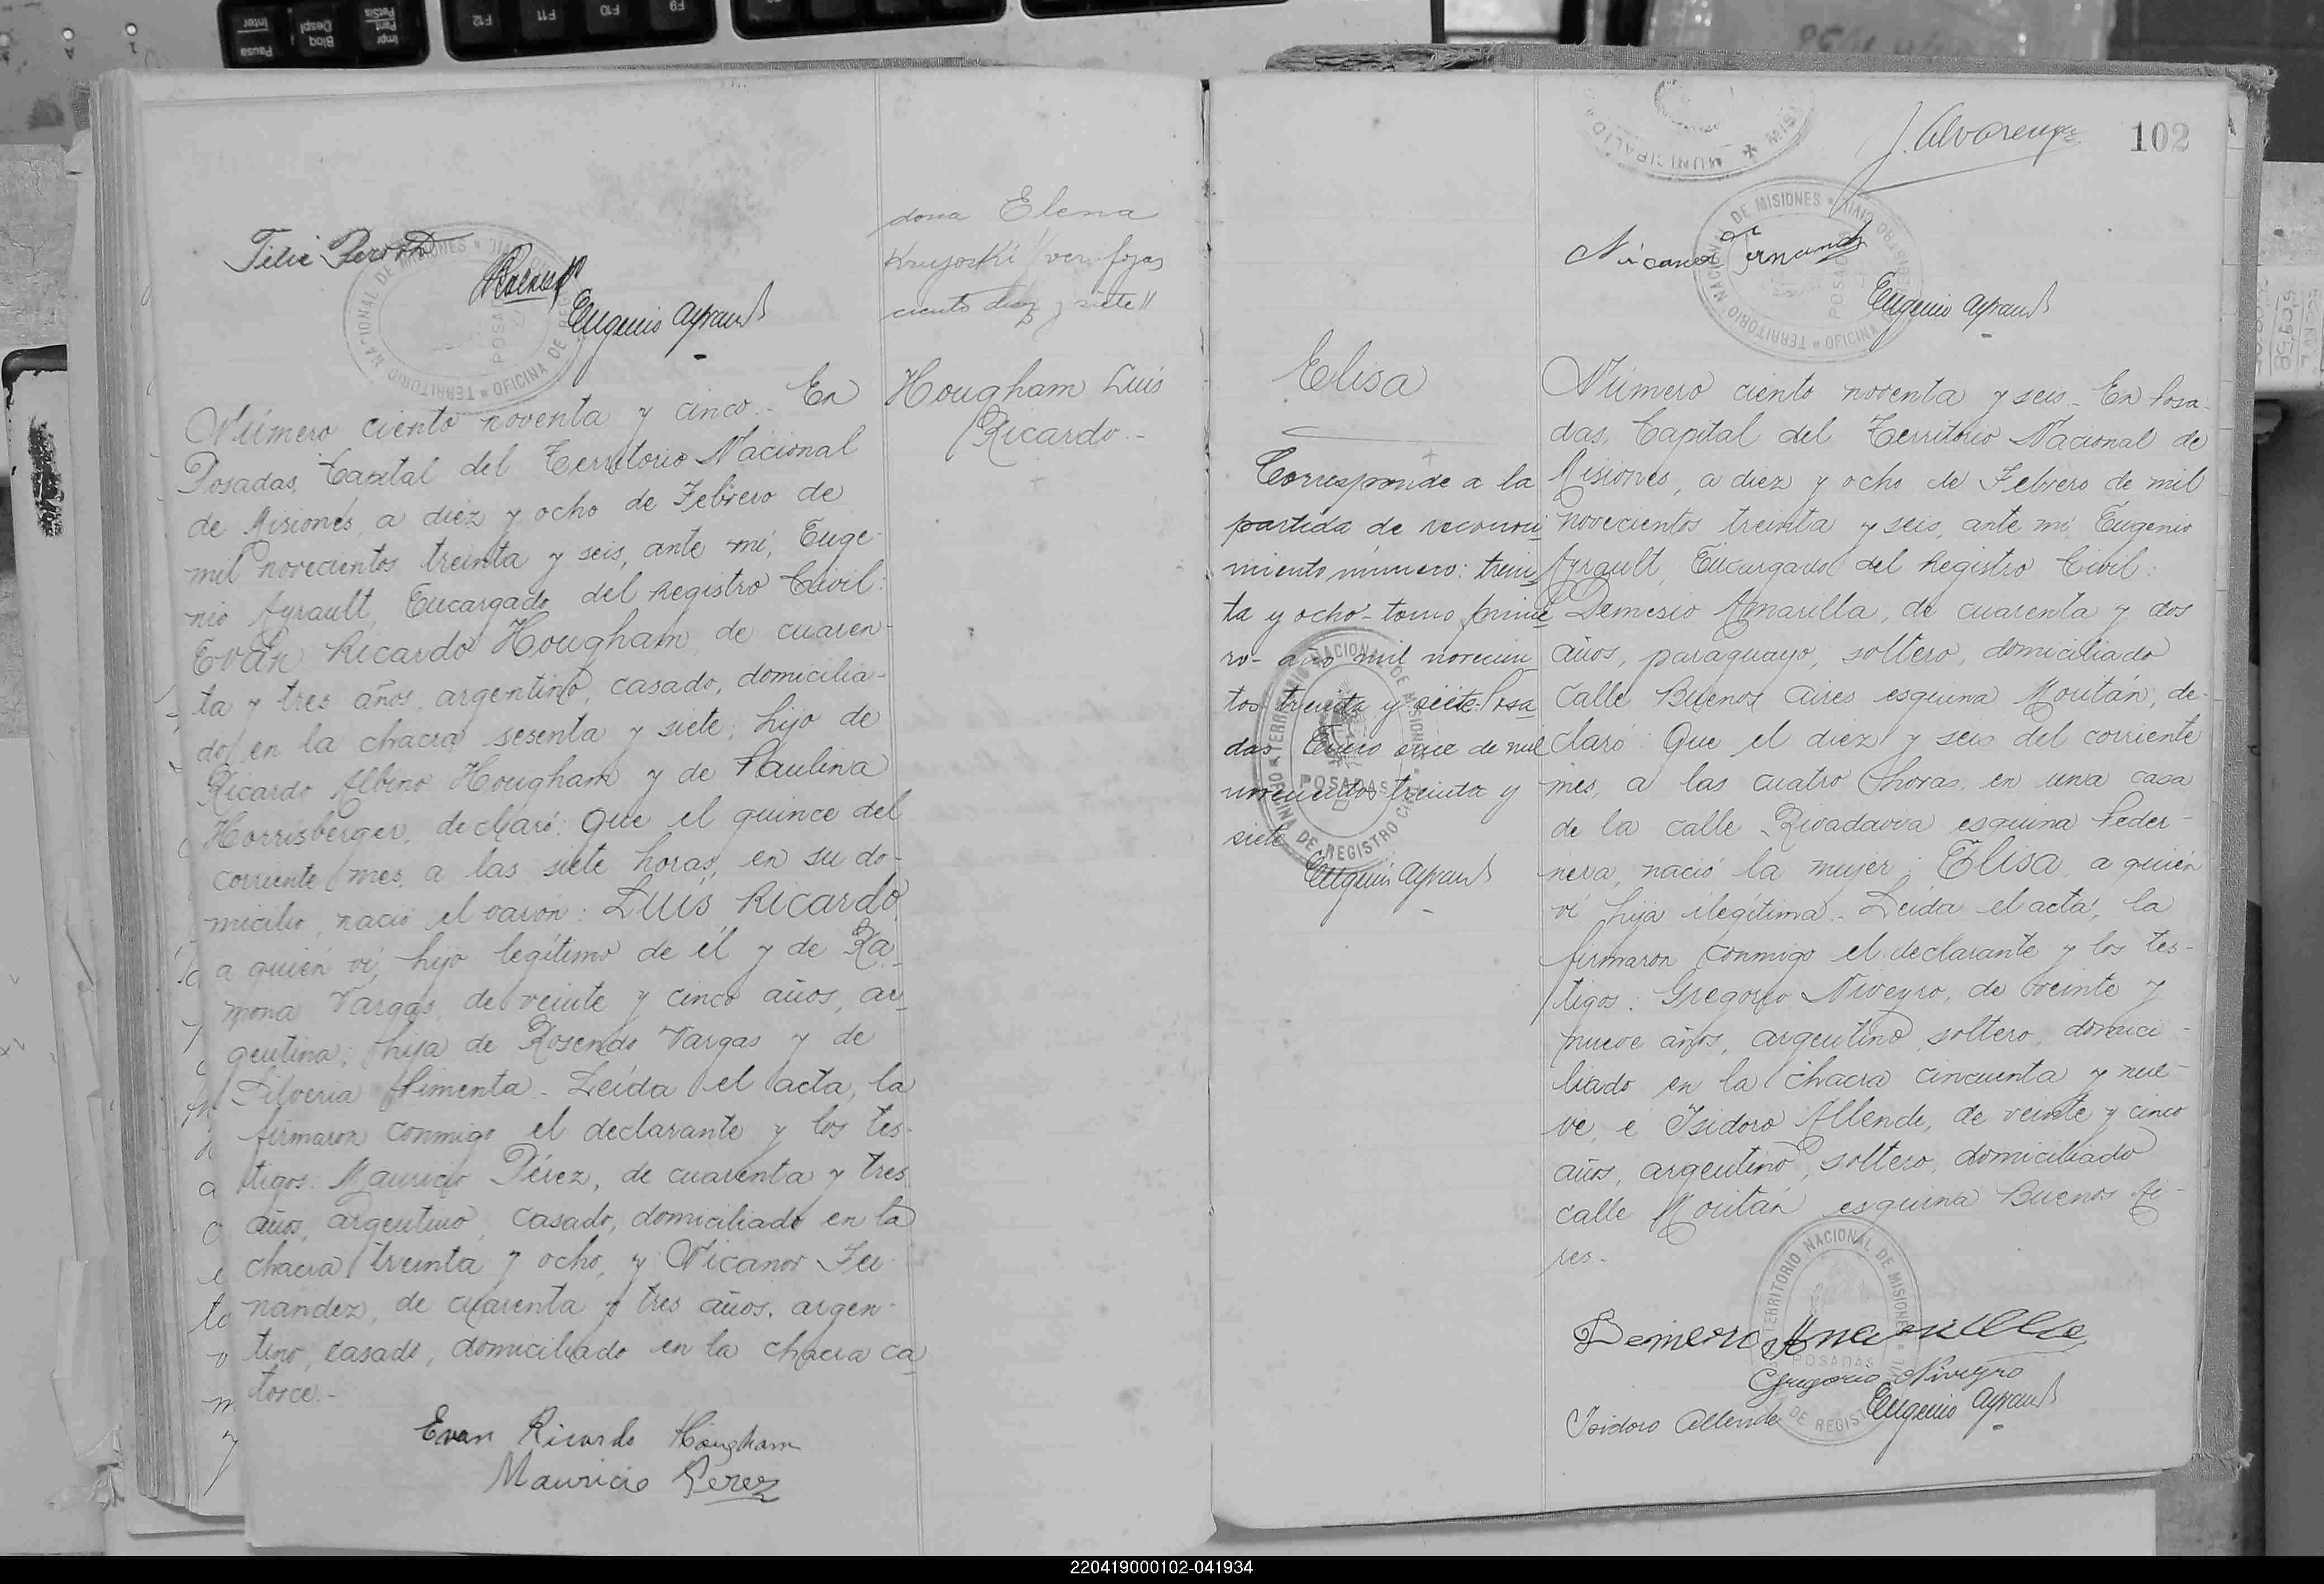 Pausa
Inter
Bloq
Despl
Impr
Pant
PetSis
F12
F11
F10
F9
Eugenio Ayrault
doña Elena
ver fojas
ciento diez y siete//
Hougham Luis
Ricardo.-
Número ciento noventa y cinco.- En
Posadas, Capital del Territorio Nacional
de Misiones, a diez y ocho de Febrero de
mil novecientos treinta y seis, ante mí, Euge-
nio Ayrault, Encargado del Registro Civil:
Evan Ricardo Hougham, de cuaren-
ta y tres años, argentino, casado, domicilia-
do en la chacra sesenta y siete, hijo de
Ricardo Albino Hougham y de Paulina
Horrisberger, declaró: Que el quince del
corriente mes, a las siete horas, en su do-
micilio, nació el varón: Luis Ricardo
a quién ví, hijo legítimo de él y de Ra-
mona Vargas, de veinte y cinco años, ar-
gentina; hija de Rosendo Vargas y de
Silveria Pimenta.- Leída el acta, la
firmaron conmigo el declarante y los tes-
tigos: Mauricio Pérez, de cuarenta y tres
años, argentino, casado, domiciliado en la
chacra treinta y ocho, y Nicanor Fer-
nandez, de cuarenta y tres años, argen-
tino, casado, domiciliado en la chacra ca-
torce.-
Evan Ricardo Hougham
Mauricio Perez
TERRITORIO NACIONAL DE MISIONES
OFICINA DE REGISTRO CIVIL
POSADAS
MUNICIPALIDAD
J. Alvarenga
102
Nicanor Fernandez
Eugenio Ayrault
Elisa
Corresponde a la
partida de reconoci
miento número: trein
ta y ocho- tomo prime
ro- año mil novecien
tos treinta y siete- Posa
das, Enero once de mil
novecientos treinta y
siete
Eugenio Ayrault
Número ciento noventa y seis.- En Posa-
das, Capital del Territorio Nacional de
Misiones, a diez y ocho de Febrero de mil
novecientos treinta y seis, ante mí, Eugenio
Ayrault, Encargado del Registro Civil:
Demesio Amarilla, de cuarenta y dos
años, paraguayo, soltero, domiciliado
calle Buenos Aires esquina Moritán, de-
claró: Que el diez y seis del corriente
mes, a las cuatro horas, en una casa
de la calle Rivadavia esquina Peder-
nera, nació la mujer: Elisa, a quién
ví, hija ilegítima.- Leída el acta, la
firmaron conmigo el declarante y los tes-
tigos: Gregorio Niveyro, de veinte y
nueve años, argentino, soltero, domici-
liado en la chacra cincuenta y nue-
ve, é Isidoro Allende, de veinte y cinco
años, argentino, soltero, domiciliado
calle Moritán esquina Buenos Ai-
res.-
Demesio Amarilla
Gregorio Niveyro
Isidoro Allende
Eugenio Ayrault
TERRITORIO NACIONAL DE MISIONES
POSADAS
220419000102-041934